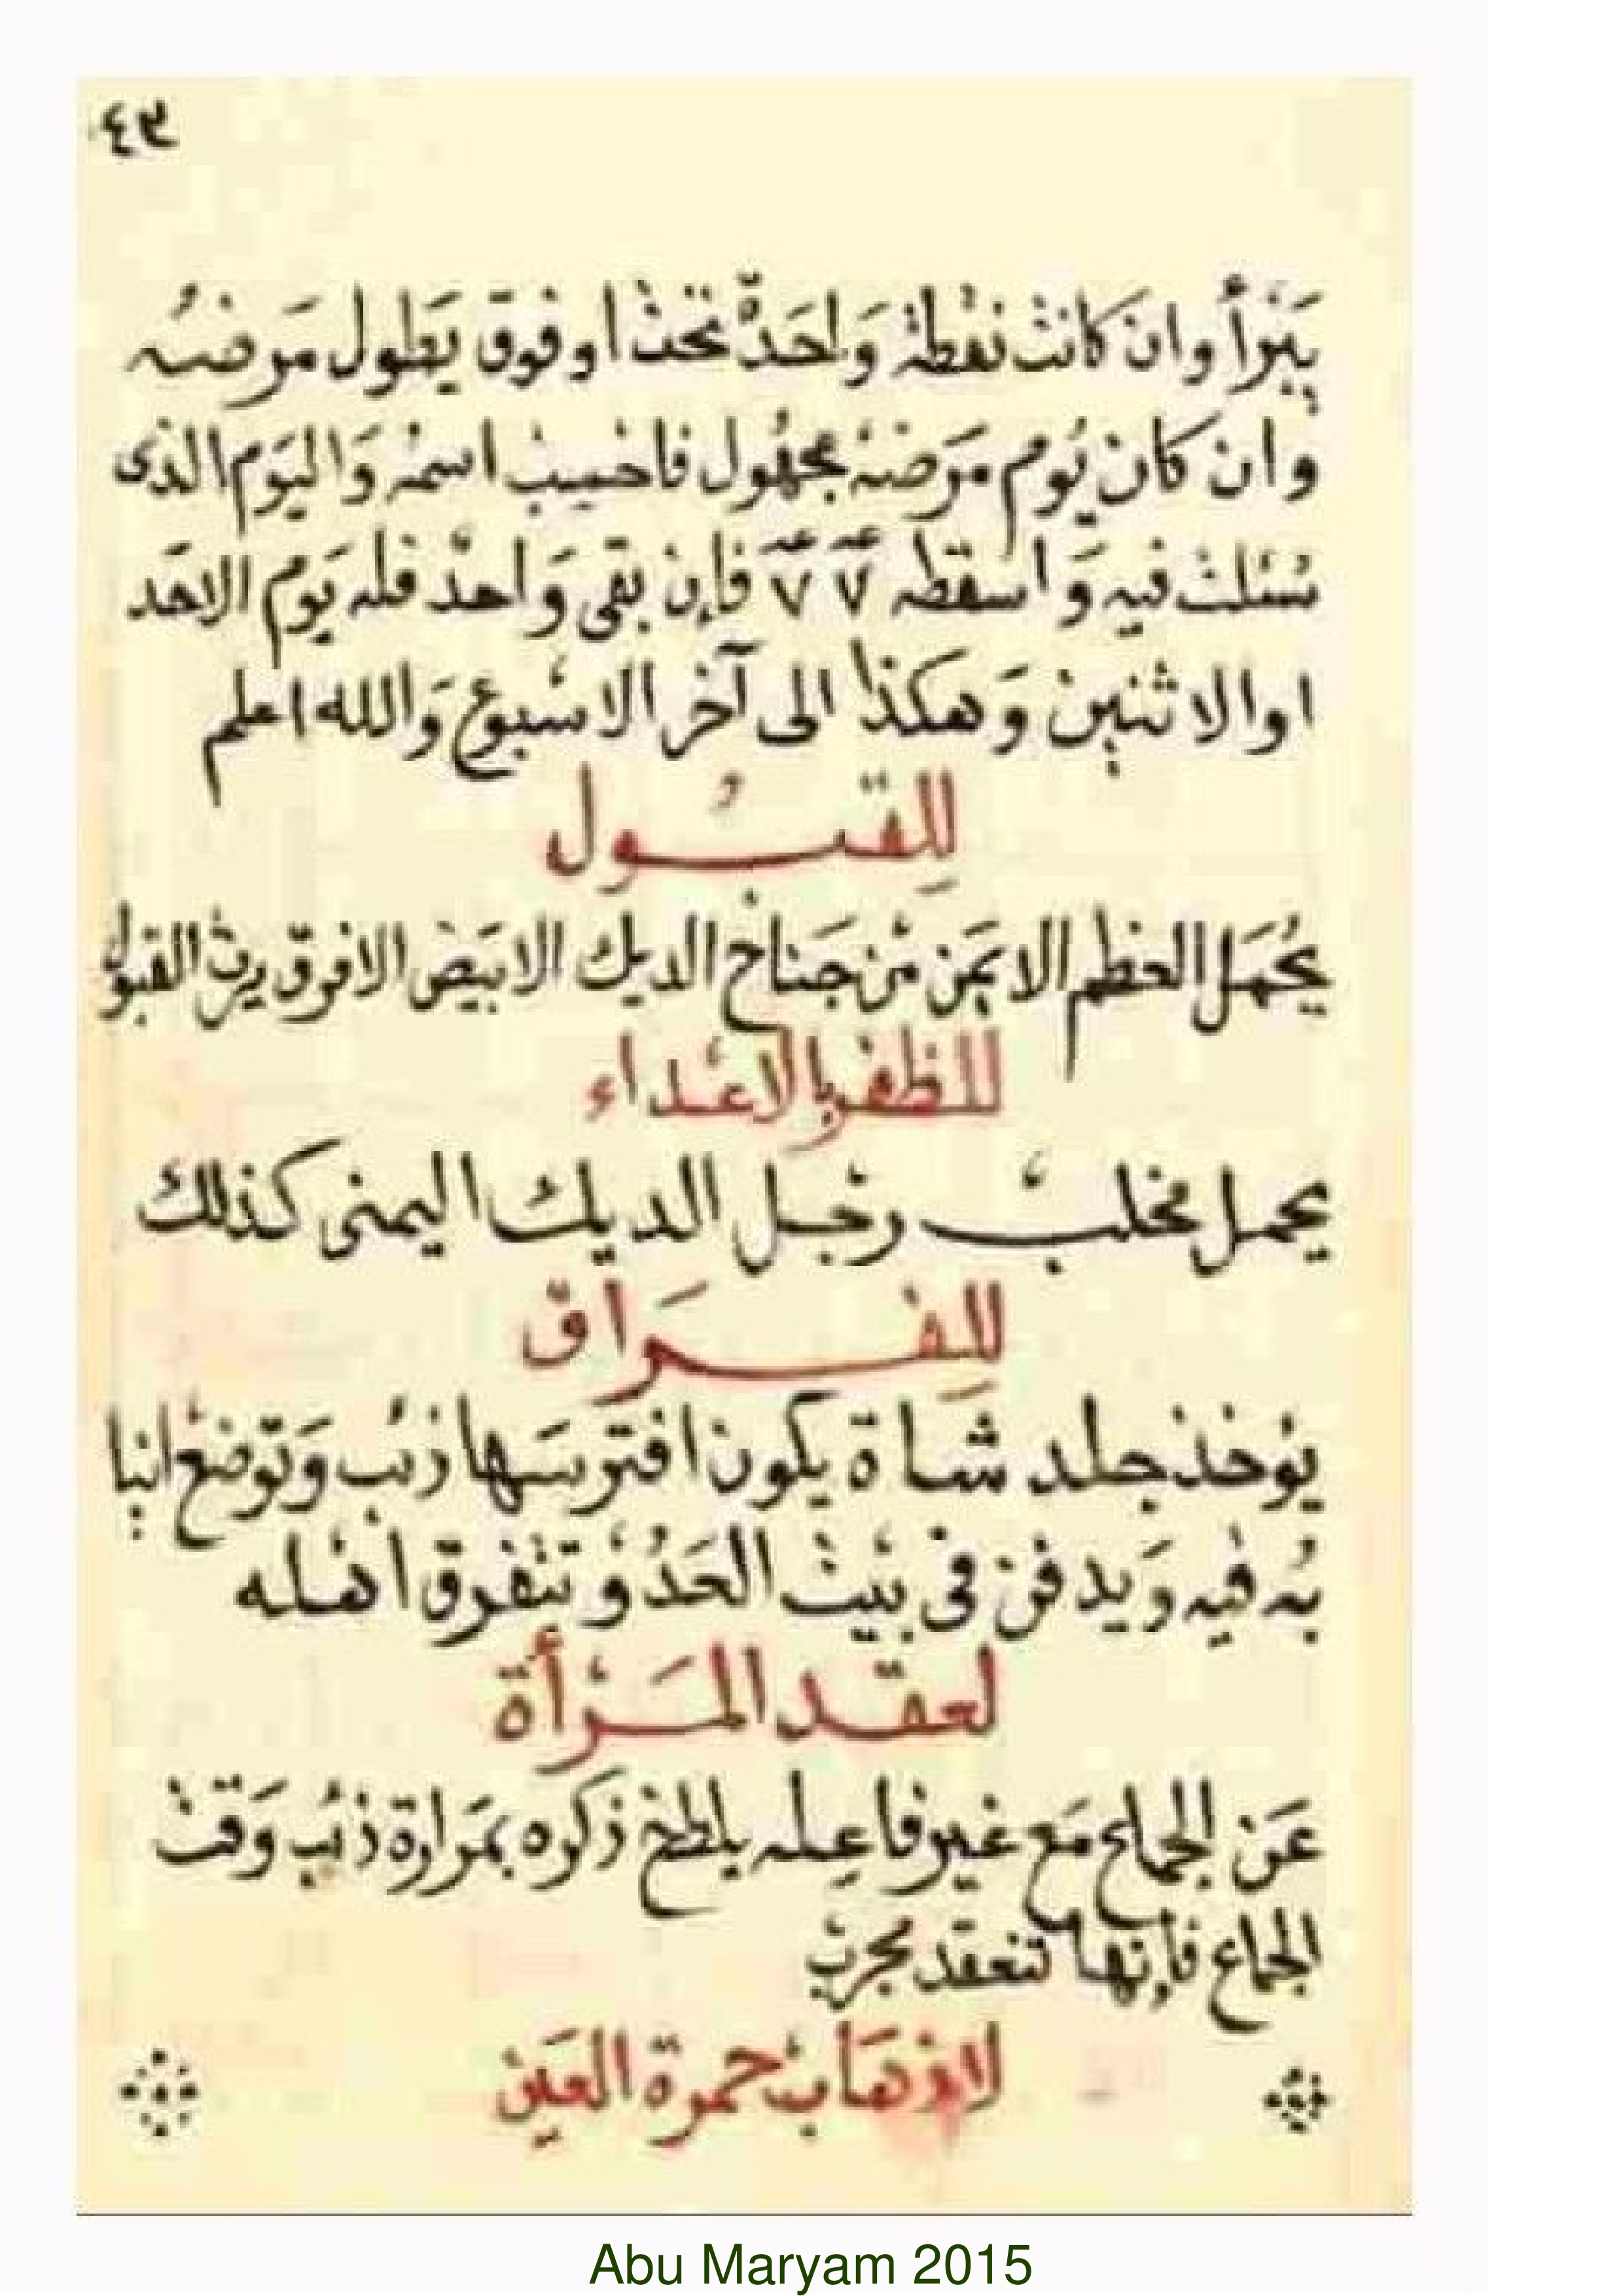 ٤٣
يَبْرَأ وان كانتْ نقطة وَاحَدّ تحتْ اوفوق يَطول مَرضهُ
وان كان يُوم مَرَضهُ مجهُول فاحْسِبْ اسمهْ وَاليَوم الذى
سُئلتْ فيهِ وَاسقطه ٧ ٧ فإن بقى وَاحدْ فله يَوم الاحَد
اوالاثنين وَهكذا الى آخر الاسْبوع وَالله اعلم
لِلِقبُول
يُحْمَل العَظم الايمَن مْن جَناحْ الديك الابيَض الافرق يرثْ القبول
للظفربالاعْداء
يحمل مخلبْ رجْل الديك اليمنى كذلك
لِلِفرَاق
يُوخذ جلد شاة يكون افترسَهَا ذئب وَتوضعْ انيا
بُه فيْه وَيدفن فى بيْت العَدُوْ تتفرق اهْله
لعقد المَرْأة
عَن الجماع مَع غير فاعِله يلطخ ذكره بمَرارة ذئب وَقتْ
الجماع فإنها تنعقد مجرب
لاذهَابْ حمرة العَينْ
Abu Maryam 2015